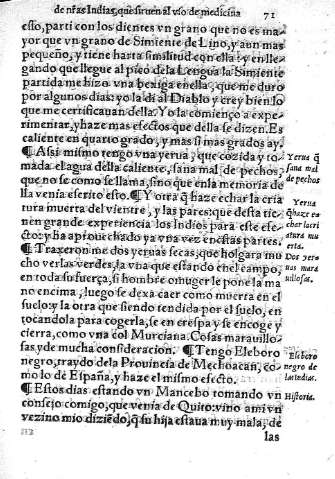 de nr̃as Indias, que siruen al vso de medicina 71
esso, parti con los dientes vn grano que no es ma
yor que vn grano de Simiente de Lino, y aun mas
pequeño, y tiene harta similitud con ella: y en lle
gando que llegue al pico dela Lengua la Simiente
partida me hizo vna bexiga en ella, que me duro
por algunos dias: yo la di al Diablo y crey bien lo
que me certificauan della. Yo la començo a expe-
rimentar, y haze mas efectos que della se dizen. Es
caliente en quarto grado, y mas si mas grados ay.
¶ Assi mismo tengo vna yerua, que cozida y to-
mada el agua della caliente, sana mal de pechos,
que no se como se llama, sino que en la memoria de
lla venia escrito esto. ¶ Y otra q̃ haze echar la cria
tura muerta del vientre, y las pares: que desta tie-
nen grande experiencia los Indios para este efe-
cto: y ha aprouechado ya vna vez en estas partes.
¶ Traxeron me dos yeruas secas, que holgara mu
cho ver las verdes, la vna que estando en el campo,
en toda su fuerça, si hombre o muger le pone la ma
no encima, luego se dexa caer como muerta en el
suelo: y la otra que siendo tendida por el suelo, en
tocandola para cogerla, se en crespa y se encoge y
cierra, como vna col Murciana. Cosas marauillo-
sas, y de mucha consideracion. ¶ Tengo Eleboro
negro, traydo dela Prouinsa de Mechoacan, co-
mo lo de España, y haze el mismo efecto.
¶ Estos dias estando vn Mancebo tomando vn
consejo comigo, que venia de Quito: vino ami vn
vezino mio diziẽdo, q̃ su hija estaua muy mala, de
las
Yerua q̃
sana mal
de pechos
Yerua
q̃ haze e
char la cri
atura mu
erta.
Dos yer
uas mara
uillosas.
Eleboro
negro de
las indias.
Historia.